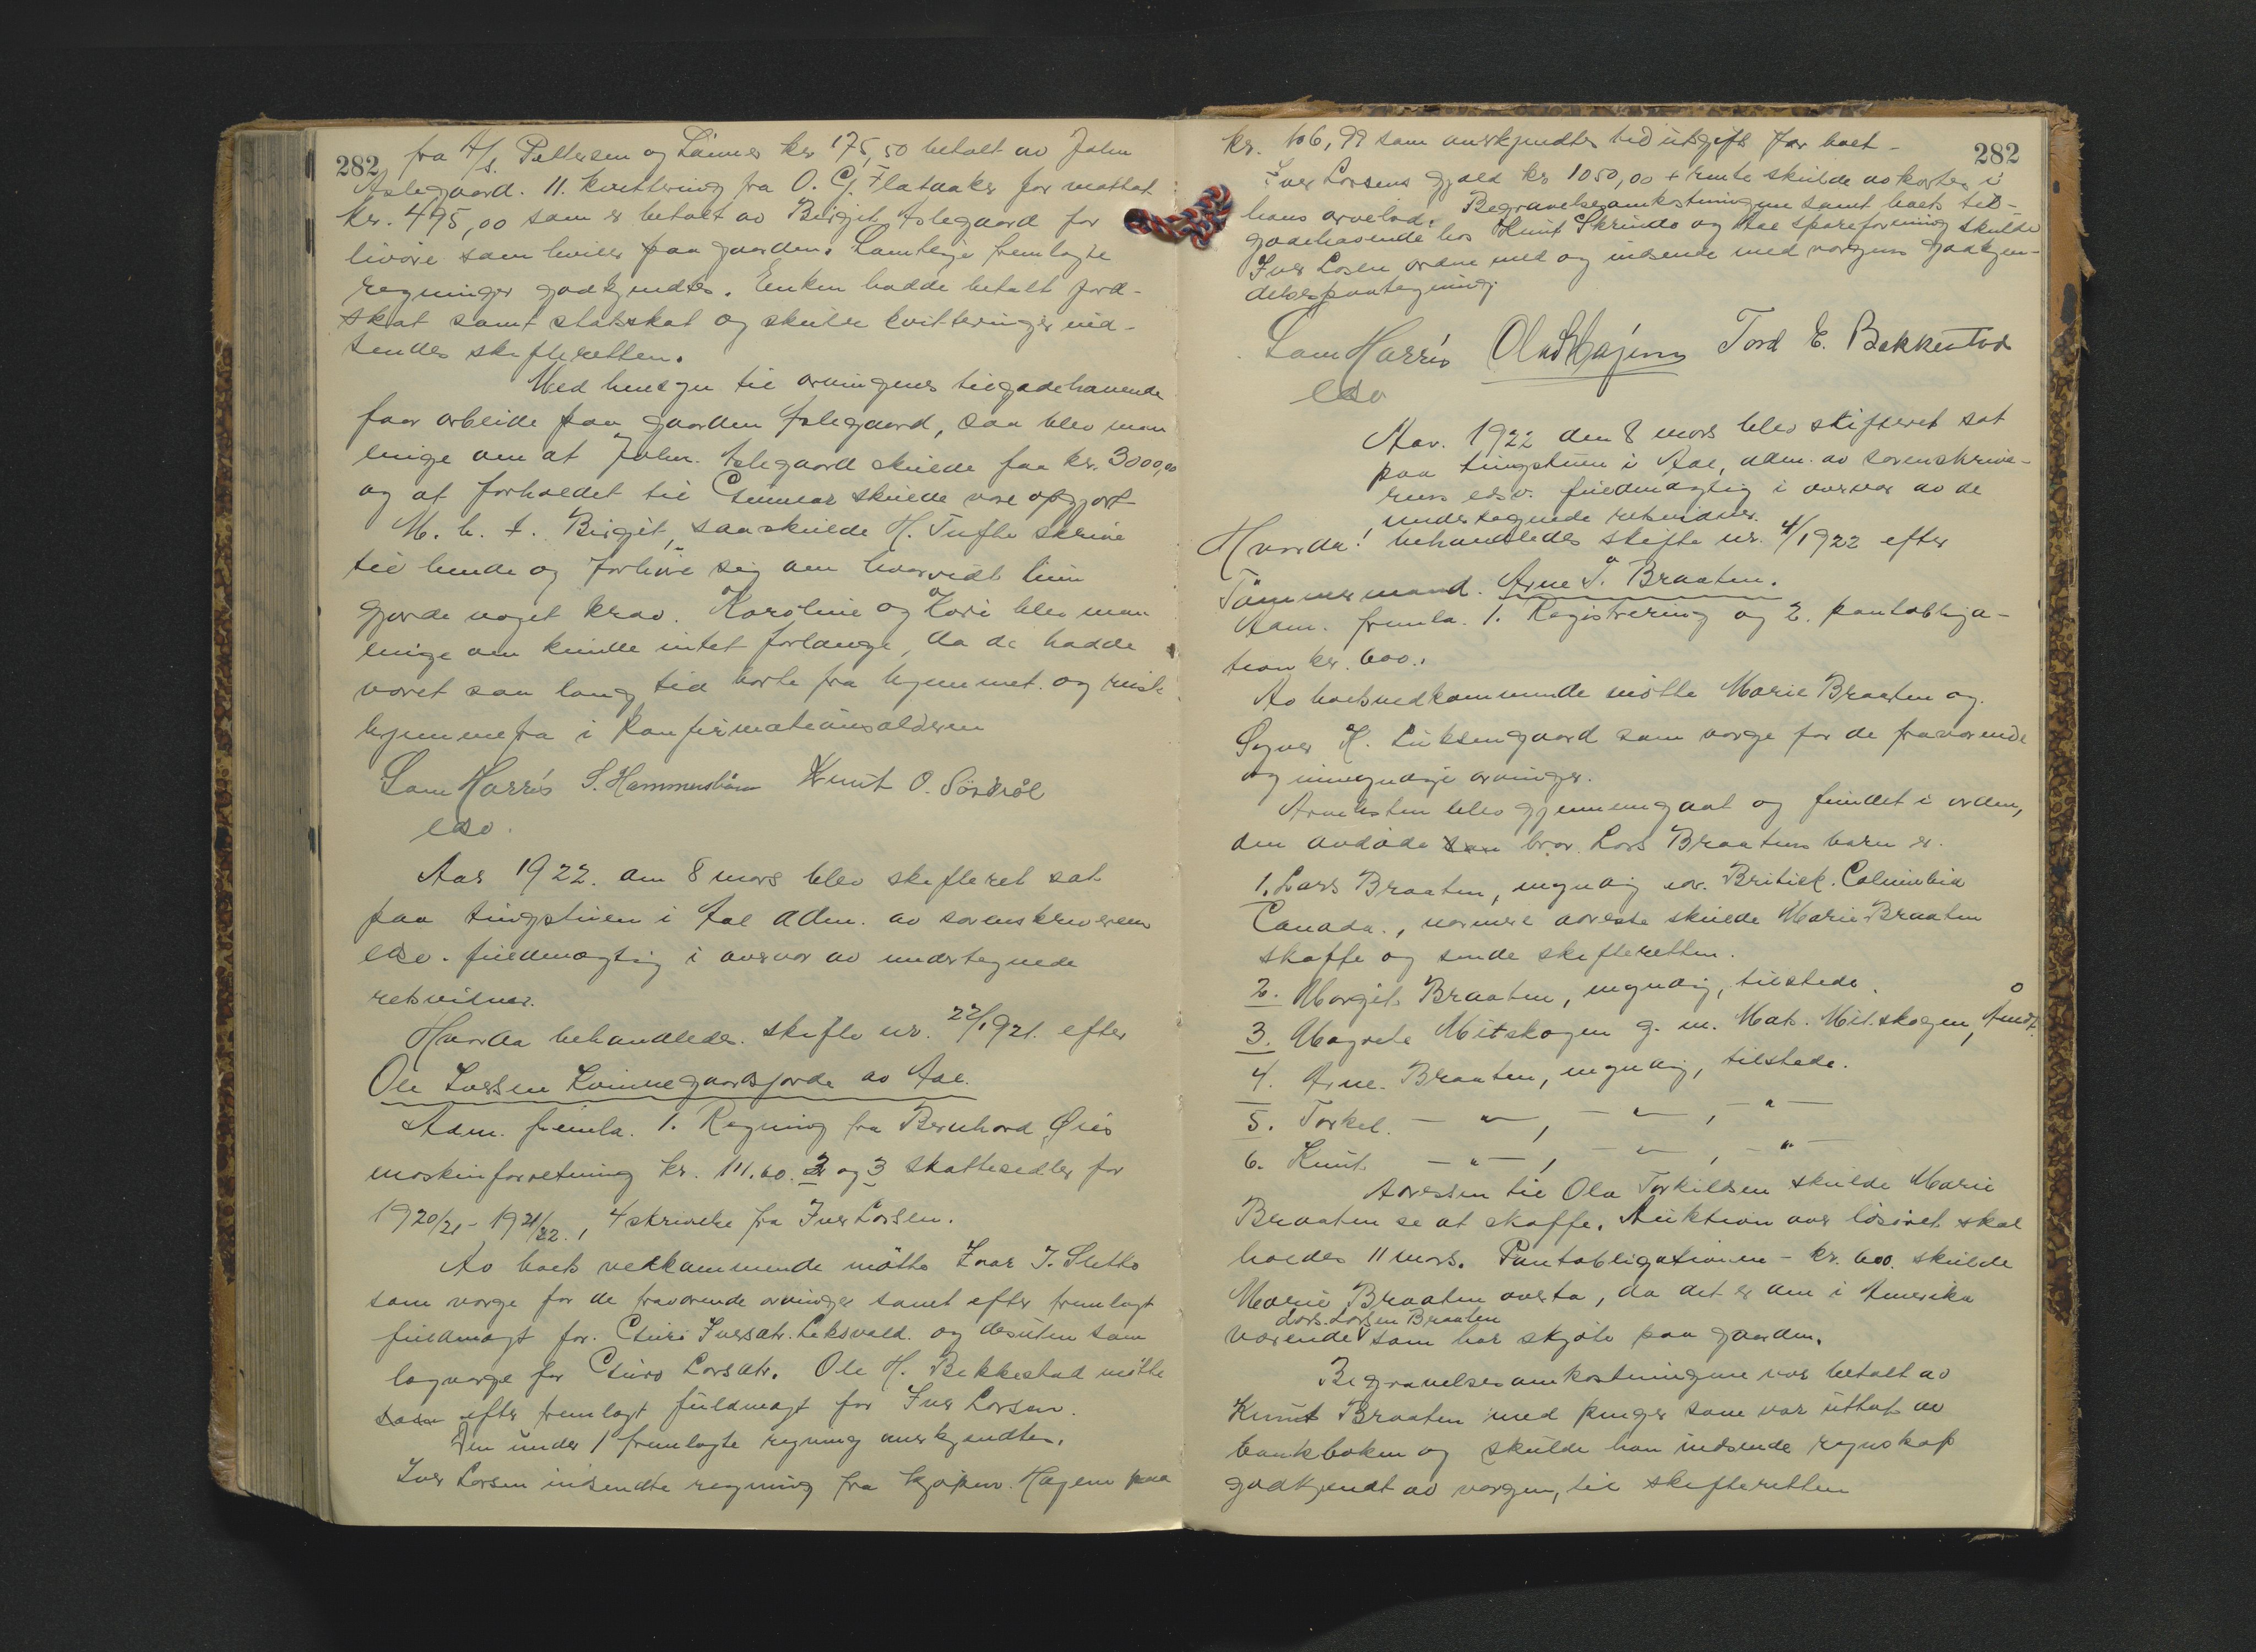 282
fra A/s. Pettersen og Linnes kr 175,50 betalt av John
Aslegaard. 11. kvittering fra O. G. Flataaker for mottat
kr. 495,00 som er betalt av Birgit Aslegaard for
livöre som hviler paa gaarden. Samtlige fremlagte
regninger godkjendtes. Enken hadde betalt jord-
skat samt statsskat og skulde kvitteringer ind-
sendes skifteretten.
Med hensyn til arvingenes tilgodehavende
for arbeide paa gaarden Aslegaard, saa blev man
enige om at John Aslegaard skulde faa kr. 3000,00
og at forholdet til Gunnar skulde vore opgjort
M. h. t. Birgit, saa skulde H. Tufte skrive
til hende og forhöre sig om hvorvidt hun
gjorde noget krav. Karoline og Kari blev man
enige om kunde intet forlange, da de hadde
voret saa lang tid borte fra hjemmet og reist
hjemmefra i konfirmationsalderen
Sam Harris S. Hammersbön Knut O. Sörbröl
edsv.
Aar 1922. den 8 mars blev skifteret sat
paa tingstuen i Aal adm. av sorenskriverens
edsv. fuldmægtig i overvær av undertegnede
retsvidner.
Hvorda behandledes. skifte nr. 22/1921. efter
Ole Larsen Kvinnegaardsjorde av Aal.
Adm. fremla. 1. Regning fra Bernhard Öies
maskinforretning kr. 111.60. 2 og 3 skattesedler for
1920/21 - 1921/22., 4 skrivelse fra Iver Larsen.
Av boets vedkommende mötte Ivar T. Sletto
som verge for de fraværende arvinger samt efter fremlagt
fuldmagt for. Guri Iversdtr. Leksvold. og desuten som
lagverge for Guro Larsdtr. Ole H. Bekkestad mötte
som efter fremlagt fuldmagt for Iver Larsen.
Den under 1 fremlagte regning anerkjendtes.
Iver Larsen indsendte regning fra kjöpm. Hagen paa
282
kr. 106,99 som anerkjendtes ved utgift for boet -
Iver Larsens gjæld kr 1050,00 + rente skulde avkortes i
hans arvelod. Begravelsesomkstningene samt boets til-
godehavende hos Knut Skrindo og Aal spareforening skulde
Iver Larsen ordne med og indsende med vergens godkjen-
delsespaategning.
Sam Harris Ola Hagen Tord E. Bekkestad
edsv
Aar. 1922 den 8 mars blev skifteret sat
paa tingstuen i Aal, adm. av sorenskrive-
rens edsv. fuldmægtig i overvær av de
undertegnede retsvidner.
Hvorda! behandledes skifte nr. 4/1922 efter
Tömmermand. Arne T. Braaten.
Adm. fremla. 1. Registrering og 2. pantobliga-
tion kr. 600.,
Av boets vedkommende mötte Marie Braaten og
Sygner H. Luksengaard som verge for de fraværende
og umyndige arvinger.
Arvelisten blev gjennemgaat og fundet i orden,
den avdöde som bror Lars Braatens barn er.
1. Lars Braaten, myndig adr. Britisk. Columbia
Canada., nærmere adresse skulde Marie Braaten
skaffe og sende skifteretten.
2. Margit Braaten, myndig, tilstede.
3. Magrete Mitskogen g. m. Mats. Mitskogen, Åmot.
4. Arne. Braaten, myndig, tilstede.
5. Torkel. — " — , — " — , — " —
6. Knut. — " — , — " — , — " —
Adressen til Ola Torkildsen skulde Marie
Braaten se at skaffe. Auktion over lösöret skal
holdes 11 mars. Pantobligationen - kr. 600. skulde
Marie Braaten overta, da det er den i Amerika
Lars. Larsen Braaten
værende som har skjöte paa gaarden.
Begravelsesomkostningene var betalt av
Knut Braaten med penger som var uttat av
bankboken og skulde han indsende regnskap
godkjendt av vergen, til skifteretten